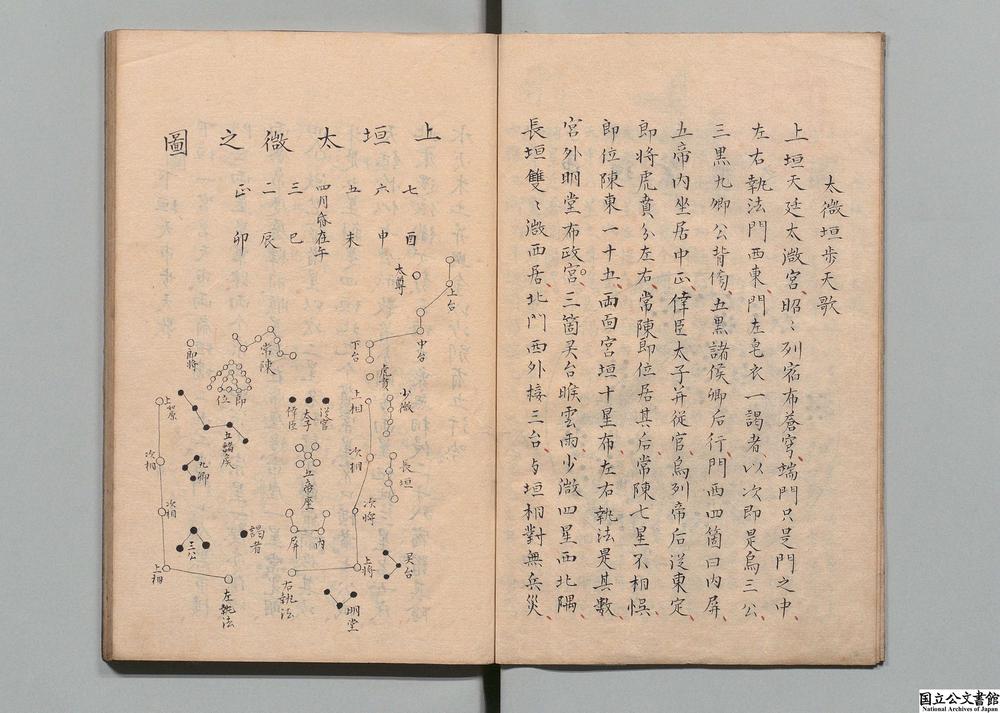 太微垣步天歌
上垣天廷太微宮昭〻列宿布蒼穹端門只是門之中
左右執法門西東門左皂衣一謁者以次即是烏三公
三黒九卿公背傍五黒諸侯卿后行門西四箇曰内屏
五帝内坐居中正倖臣太子并從官烏列帝后從東定
郎將虎賁分左右常陳郎位居其后常陳七星不相悞
郎位陳東一十五両面宮垣十星布左右執法是其數
宮外明堂布政宮三箇灵台睺雲雨少微四星西北隅
長垣雙〻微西居北門西外接三台与垣相對無兵災
上垣太微之圖
七酉
六申
五未
四月昏在午
三巳
二辰
正卯
太尊
上台
中台
下台
虎賁
少微
長垣
上相
次相
次將
上將
灵台
明堂
右執法
左執法
從官
太子
倖臣
五帝座
内
屏
謁者
常陳
郎位
郎將
五諸侯
九卿
三公
次相
次相
上相